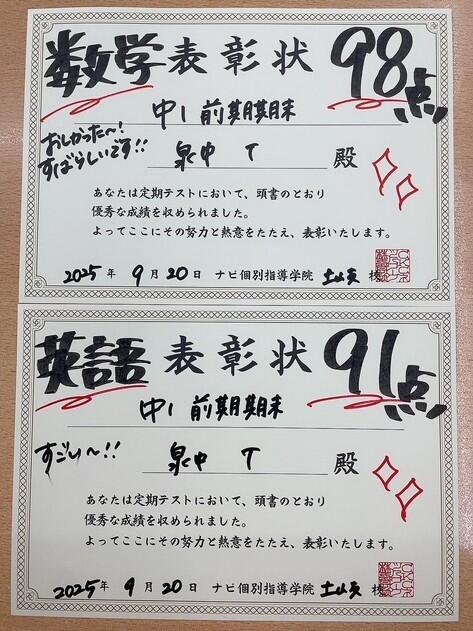 数学表彰状 98点
中1 前期期末
おしかった〜!
すばらしいです!!
泉中 T 殿
あなたは定期テストにおいて、頭書のとおり
優秀な成績を収められました。
よってここにその努力と熱意をたたえ、表彰いたします。
2025年 9月20日 ナビ個別指導学院 校
英語表彰状 91点
中1 前期期末
すごい〜!!
泉中 T 殿
あなたは定期テストにおいて、頭書のとおり
優秀な成績を収められました。
よってここにその努力と熱意をたたえ、表彰いたします。
2025年 9月20日 ナビ個別指導学院 校